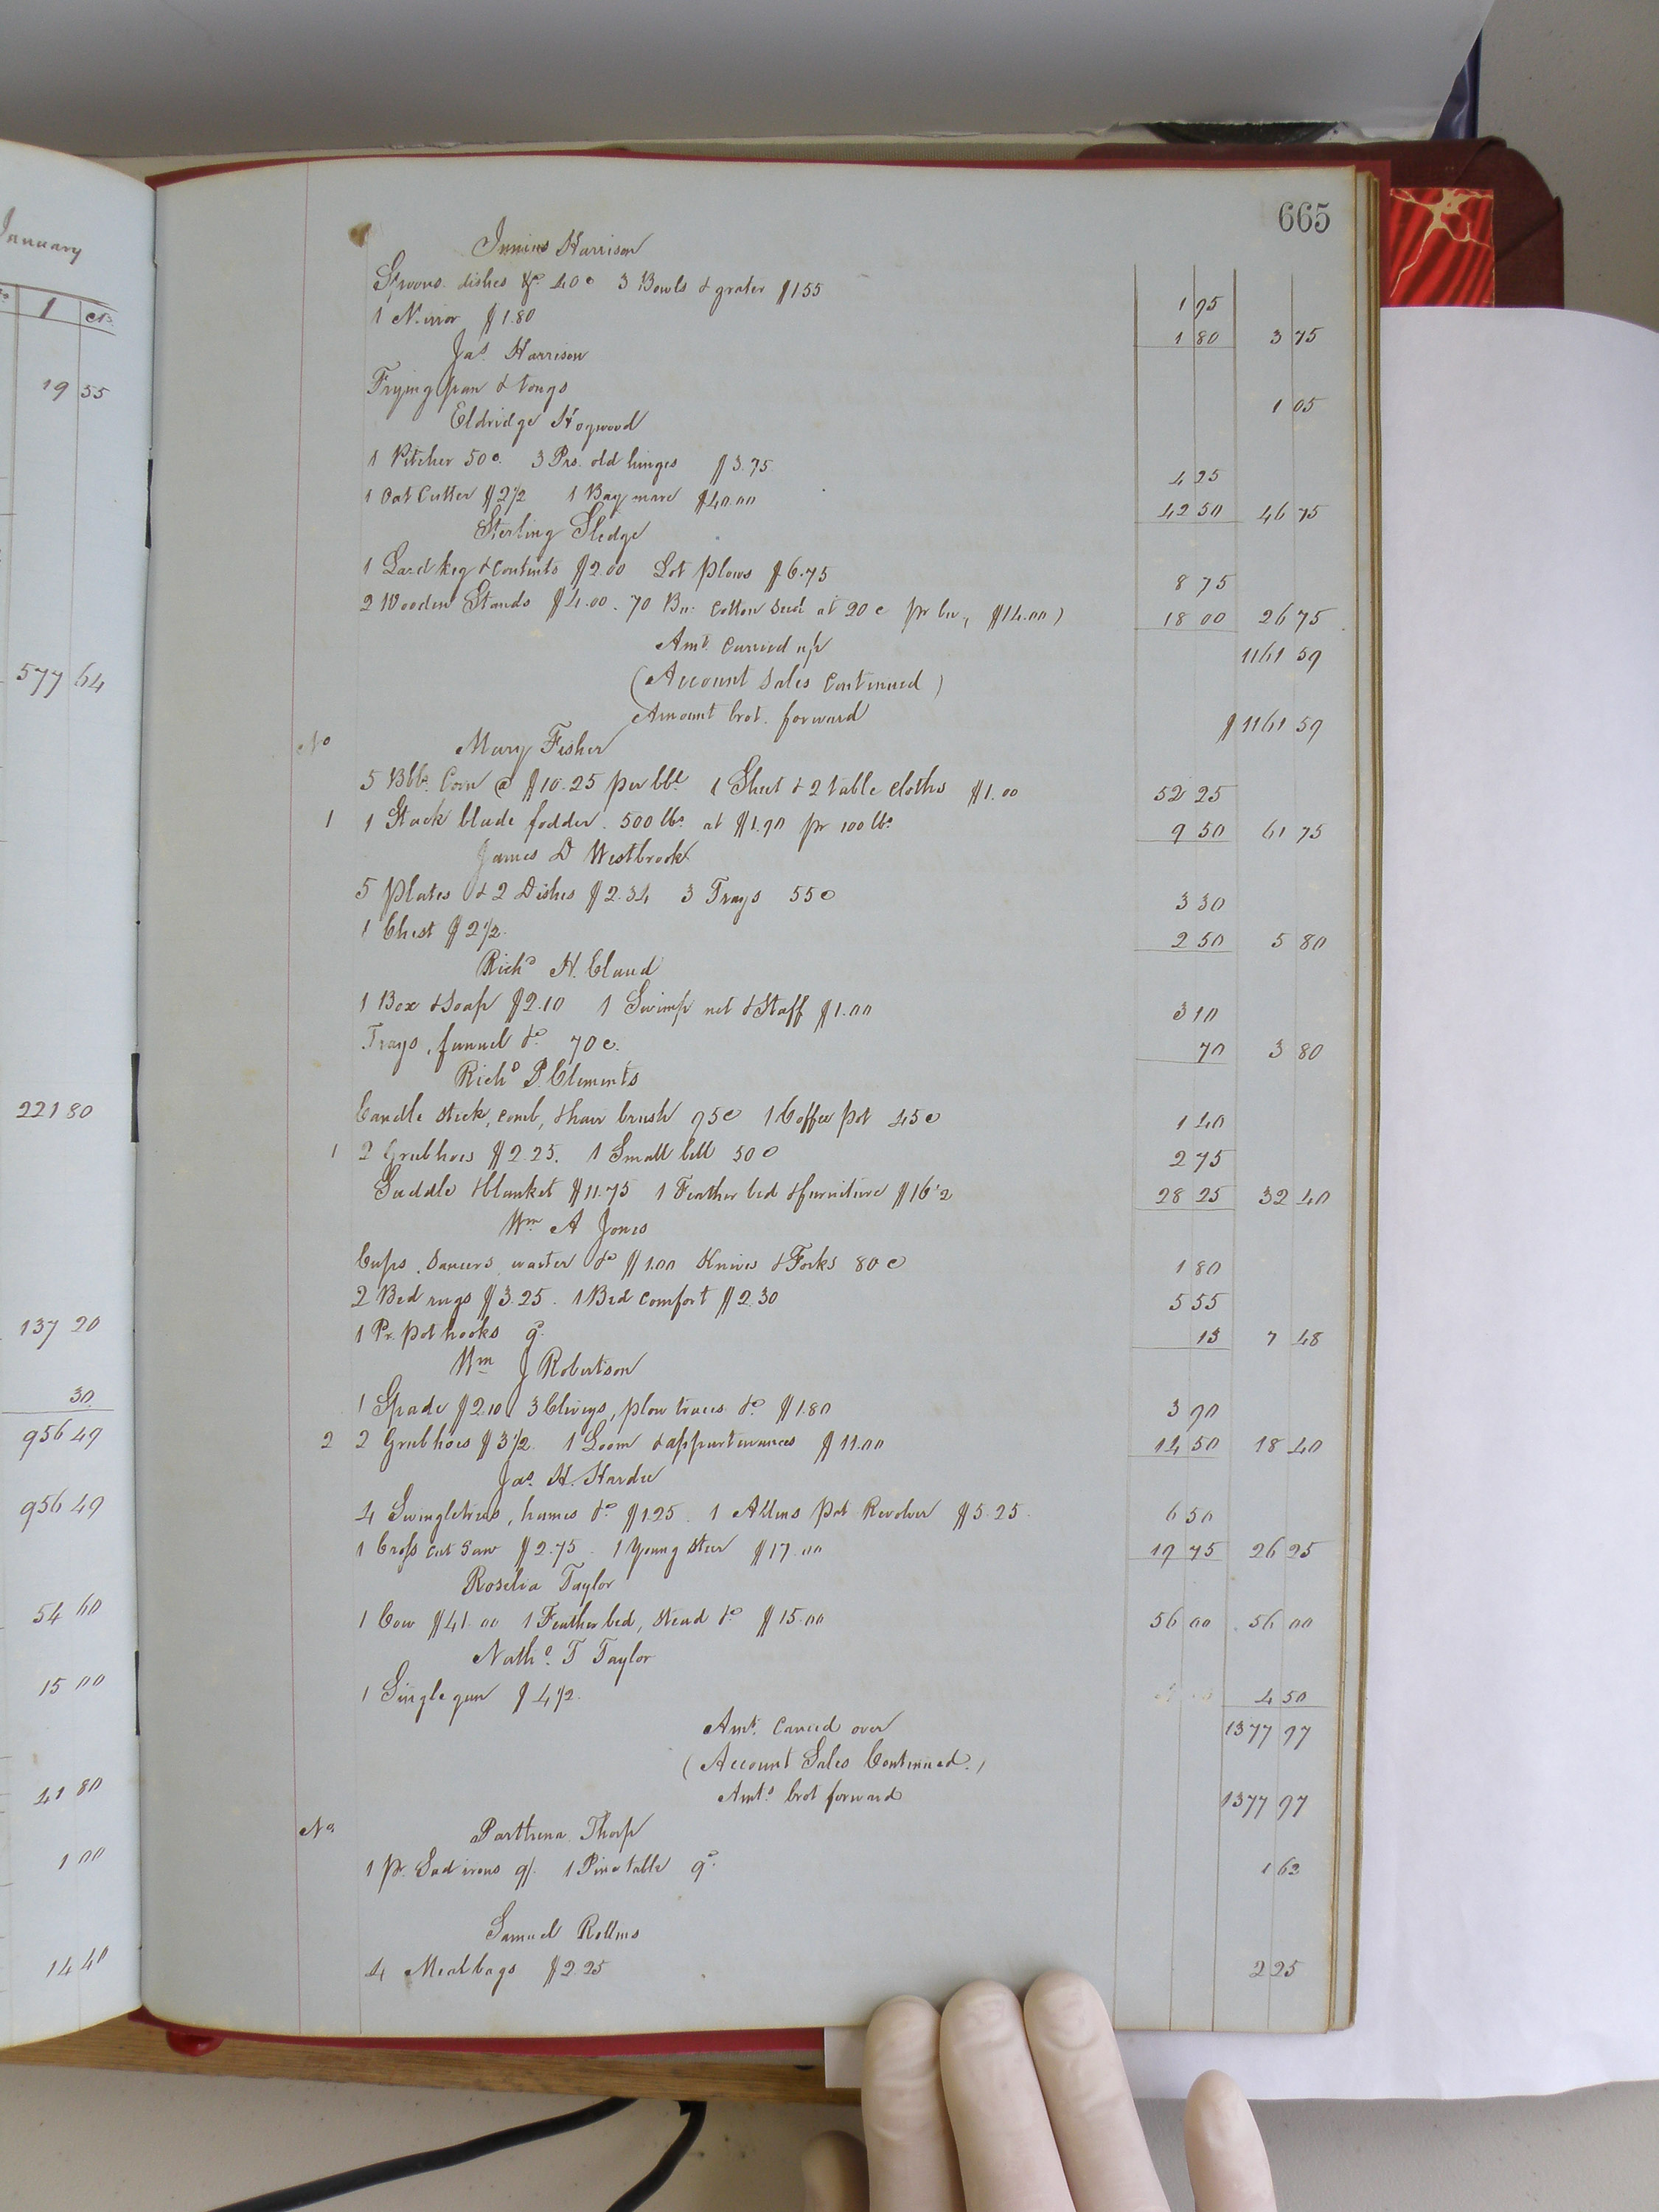 January
1 cts.
19 55
577 64
221 80
137 20
30
956 49
956 49
54 60
15 00
41 80
1 00
14 40
665
Junius Harrison
Spoons dishes &c 40c 3 Bowls & grater $1.55 1 95
1 Mirror $1.80 1 80 3 75
Jas. Harrison
Frying pan & tongs 1 05
Eldridge Hogwood
1 Pitcher 50c. 3 Prs. old hinges $3.75 4 25
1 Oat Cutter $2 1/2 1 Bay mare $40.00 42 50 46 75
Sterling Sledge
1 Lard keg & Contents $2.00 Lot plows $6.75 8 75
2 Wooden Stands $4.00. 70 Bu. Cotton Seed at 20c pr bu, $14.00) 18 00 26 75
Amt. Carried up 1161 59
(Account Sales Continued)
Amount brot. forward $1161 59
No Mary Fisher
5 Bbls. Corn @ $10.25 per bbl 1 Sheet & 2 table cloths $1.00 52 25
1 1 Stack blade fodder. 500 lbs. at $1.90 pr 100 lbs. 9 50 61 75
James D Westbrook
5 plates & 2 Dishes $2.34 3 Trays 55c 3 30
1 Chest $2 1/2. 2 50 5 80
Richd H. Eland
1 Box & Soap $2.10 1 Swimp net & Staff $1.00 3 10
Trays, funnel &c. 70c. 70 3 80
Richd P. Clements
Candle stick, comb, & hair brush 95c 1 Coffee pot 45c 1 40
1 2 Grubhoes $2.25. 1 Small bell 50c 2 75
Saddle & blanket $11.75 1 Feather bed & furniture $16 1/2 28 25 32 40
Wm A Jones
Cups, Saucers, waiter &c $1.00 Knives & Forks 80c 1 80
2 Bed rugs $3.25. 1 Bed comfort $2.30 5 55
1 Pr. pot hooks 13 7 48
Wm J Robertson
1 Spade $2.10 3 Cliveys, plow traces &c. $1.80 3 90
2 2 Grubhoes $3 1/2. 1 Loom & appurtenances $11.00 14 50 18 40
Jas. H. Hardee
4 Swingletrees, hames &c. $1.25. 1 Allens Pat Revolver $5.25. 6 50
1 Cross cut Saw $2.75. 1 Young Steer $17.00 19 75 26 25
Roselia Taylor
1 Cow $41.00 1 Feather bed, stead &c $15.00 56 00 56 00
Nathl. T Taylor
1 Single gun $4 1/2. 4 50
Amt. Carried over 1377 97
(Account Sales Continued.)
Amts. brot forward 1377 97
No. Parthena Thorp
1 pr. Sad irons 1 Pine table 1 63
Samuel Rollins
4 Meal bags $2.25 2 25